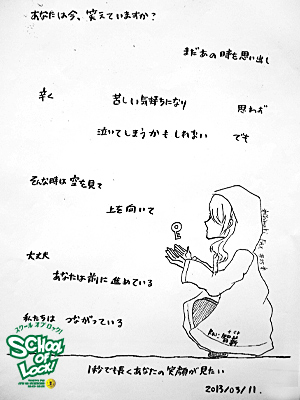 あなたは今、笑えていますか?
まだあの時を思い出し
辛く 苦しい気持ちになり 思わず
泣いてしまうかもしれない でも
そんな時は空を見て
上を向いて
大丈夫
あなたは前に進めている
私たちは つながっている
スクール オブ ロック!
SCHOOL OF LOCK!
1秒でも長くあなたの笑顔が見たい
2013/03/11.